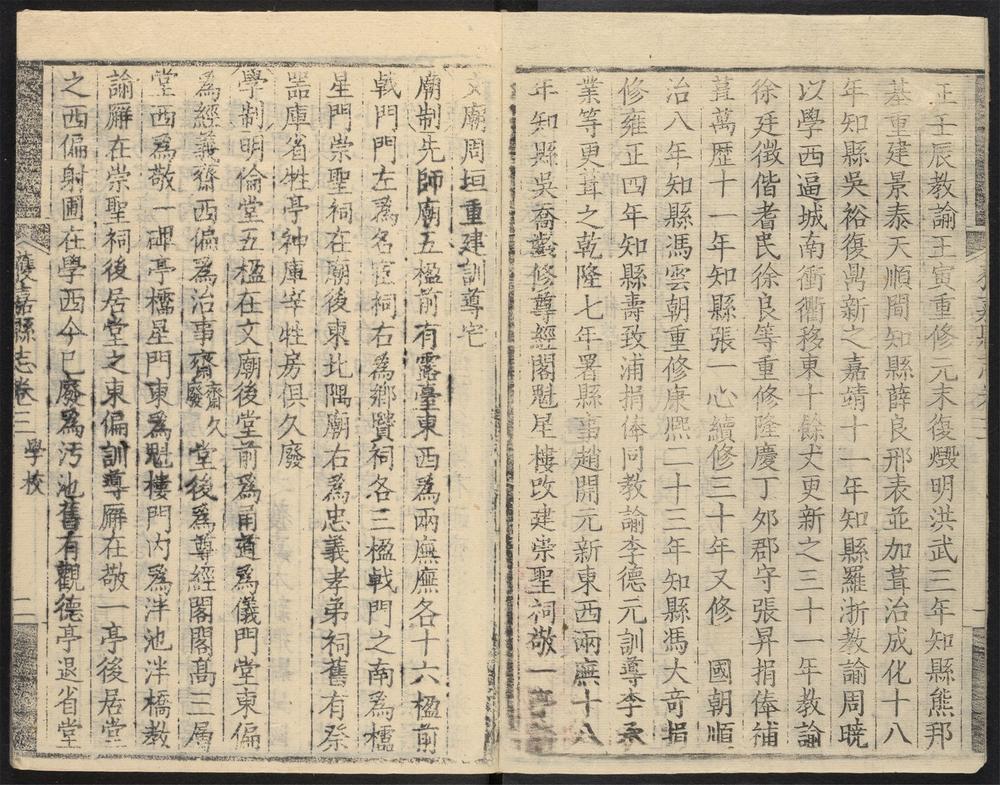 正壬辰教諭王寅重修元末復燬明洪武三年知縣熊邦
基重建景泰天順間知縣薛良邢表並加葺治成化十八
年知縣吳裕復鼎新之嘉靖十一年知縣羅浙教諭周曉
以學西逼城南衝衢移東十餘丈更新之三十一年教諭
徐廷徵偕耆民徐良等重修隆慶丁夘郡守張昇捐俸補
葺萬歷十一年知縣張一心續修三十年又修 國朝順
治八年知縣馮雲朝重修康熙二十三年知縣馮大奇捐
修雍正四年知縣壽致浦捐俸同教諭李德元訓導李承
業等更葺之乾隆七年署縣事趙開元新東西兩廡十八
年知縣吳喬齡修尊經閣魁星樓改建崇聖祠敬一亭
文廟周垣重建訓導宅
廟制先師廟五楹前有露臺東西為兩廡廡各十六楹前
戟門門左為名宦祠右為鄉賢祠各三楹戟門之南為櫺
星門崇聖祠在廟後東北隅廟右為忠義孝弟祠舊有祭
器庫省牲亭神庫宰牲房俱久廢
學制明倫堂五楹在文廟後堂前為甬道為儀門堂東偏
為經義齋西偏為治事齋齋久廢堂後為尊經閣閣高三層
堂西為敬一碑亭櫺星門東為魁樓門內為泮池泮橋教
諭廨在崇聖祠後居堂之東偏訓導廨在敬一亭後居堂
之西偏射圃在學西今已廢為汚池舊有觀德亭退省堂
獲嘉縣志卷三 學校 二